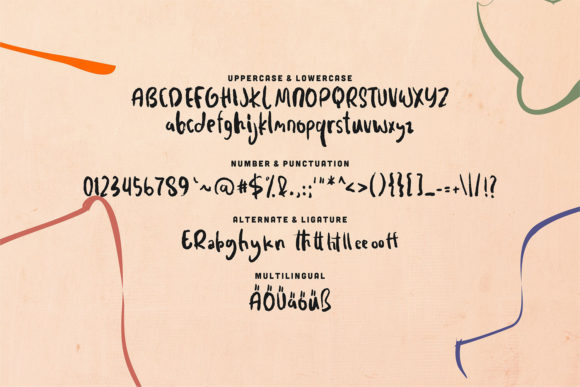 UPPERCASE & LOWERCASE
ABCDEFGHIJKLMNOPQRSTUVWXYZ
abcdefghijklmnopqrstuvwxyz
NUMBER & PUNCTUATION
0123456789`~@#$%&.,:;'"*^<>(){}[]_-=+\|/!?
ALTERNATE & LIGATURE
ERabghykn thttlitlleeooff
MULTILINGUAL
ÄÖÜäöüß